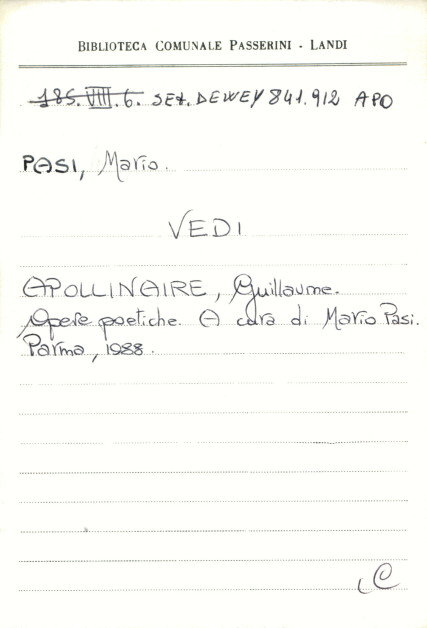 BIBLIOTECA COMUNALE PASSERINI - LANDI
185.VIII.6. SEZ. DEWEY 841.912 APO
PASI, Mario.
VEDI
APOLLINAIRE, Guillaume.
Opere poetiche. A cura di Mario Pasi.
Parma, 1988.